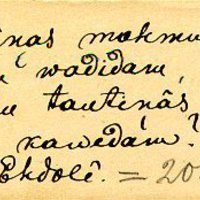 inas mokmu
wadidam,
u tautinâs
kawedám.
Ekdolê. = 20